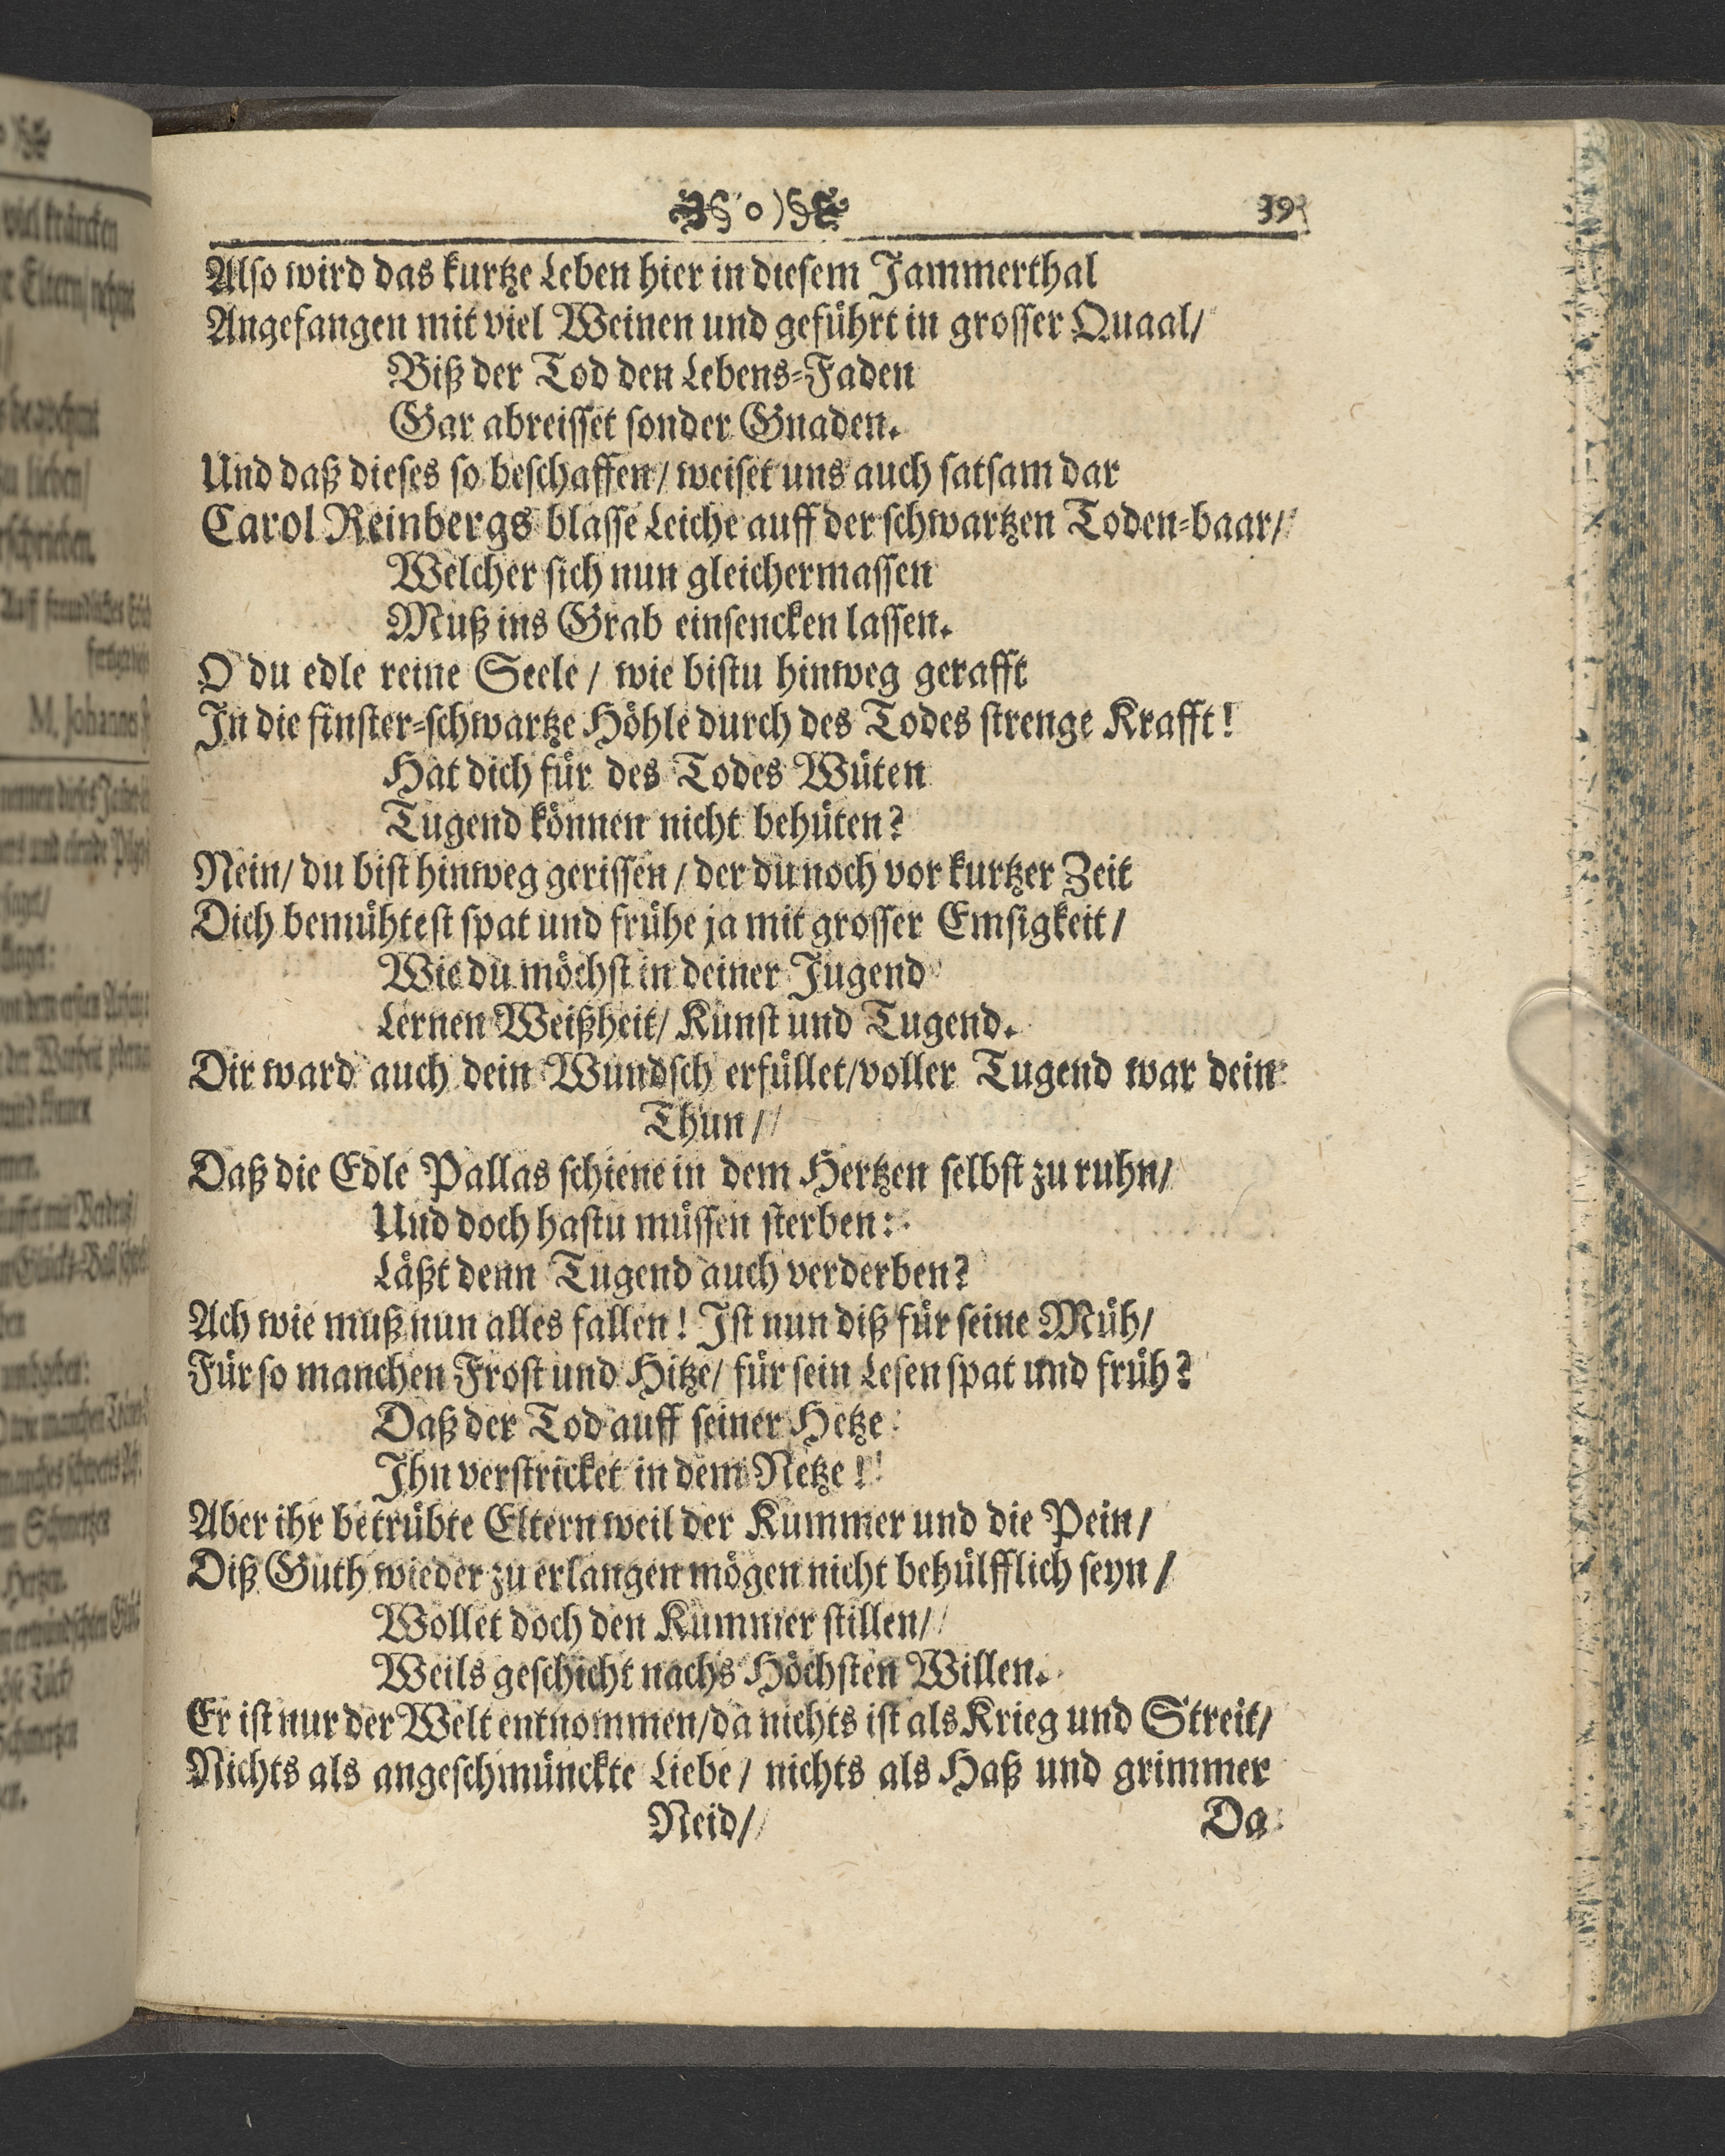 39
Also wird das kurtze Leben hier in diesem Jammerthal
Angefangen mit viel Weinen und geführt in grosser Quaal/
Biß der Tod den Lebens-Faden
Gar abreisset sonder Gnaden.
Und daß dieses so beschaffen/ weiset uns auch satsam dar
Carol Reinbergs blasse Leiche auff der schwartzen Toden-baar/
Welcher sich nun gleichermassen
Muß ins Grab einsencken lassen.
O du edle reine Seele / wie bistu hinweg gerafft
In die finster-schwartze Höhle durch des Todes strenge Krafft!
Hat dich für des Todes Wüten
Tugend können nicht behüten?
Nein/ du bist hinweg gerissen / der du noch vor kurtzer Zeit
Dich bemühtest spat und frühe ja mit grosser Emsigkeit/
Wie du möchst in deiner Jugend
Lernen Weißheit/ Kunst und Tugend.
Dir ward auch dein Wundsch erfüllet/voller Tugend war dein
Thun/
Daß die Edle Pallas schiene in dem Hertzen selbst zu ruhn/
Und doch hastu müssen sterben:
Läßt denn Tugend auch verderben?
Ach wie muß nun alles fallen! Ist nun diß für seine Müh/
Für so manchen Frost und Hitze/ für sein Lesen spat und früh?
Daß der Tod auff seiner Hetze
Ihn verstricket in dem Netze!
Aber ihr betrübte Eltern weil der Kummer und die Pein/
Diß Guth wieder zu erlangen mögen nicht behülfflich seyn/
Wollet doch den Kummer stillen/
Weils geschicht nachs Höchsten Willen.
Er ist nur der Welt entnommen/da nichts ist als Krieg und Streit/
Nichts als angeschmünckte Liebe/ nichts als Haß und grimmer
Neid/
Da